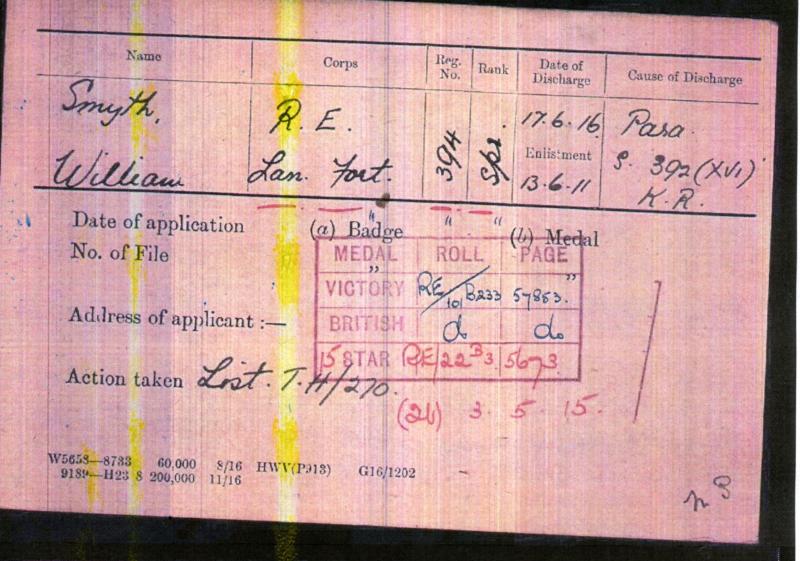 Name Corps Reg. No. Rank Date of Discharge Cause of Discharge
Smyth, R. E. 394 Spr. 17.6.16. Para
Enlistment
William Lan. Fort. 13.6.11 392 (XVI)
K.R.
Date of application (a) Badge " " " (b) Medal
No. of File " "
MEDAL ROLL PAGE
VICTORY RE/101 B233 57883.
Address of applicant :—
BRITISH do do
15 STAR RE/22 B3 5673.
Action taken List. T.H/270.
(2b) 3. 5. 15.
W5658—8733 60,000 8/16 HWV(P913) G16/1202
9189—H23 8 200,000 11/16